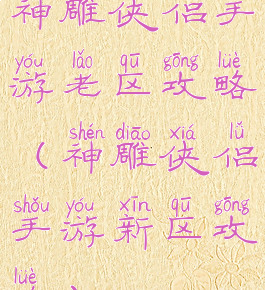 神雕侠侣手
yóu lǎo qū gōng lüè
游老区攻略
shén diāo xiá lǚ
（神雕侠侣
shǒu yóu xīn qū gōng
手游新区攻
lüè